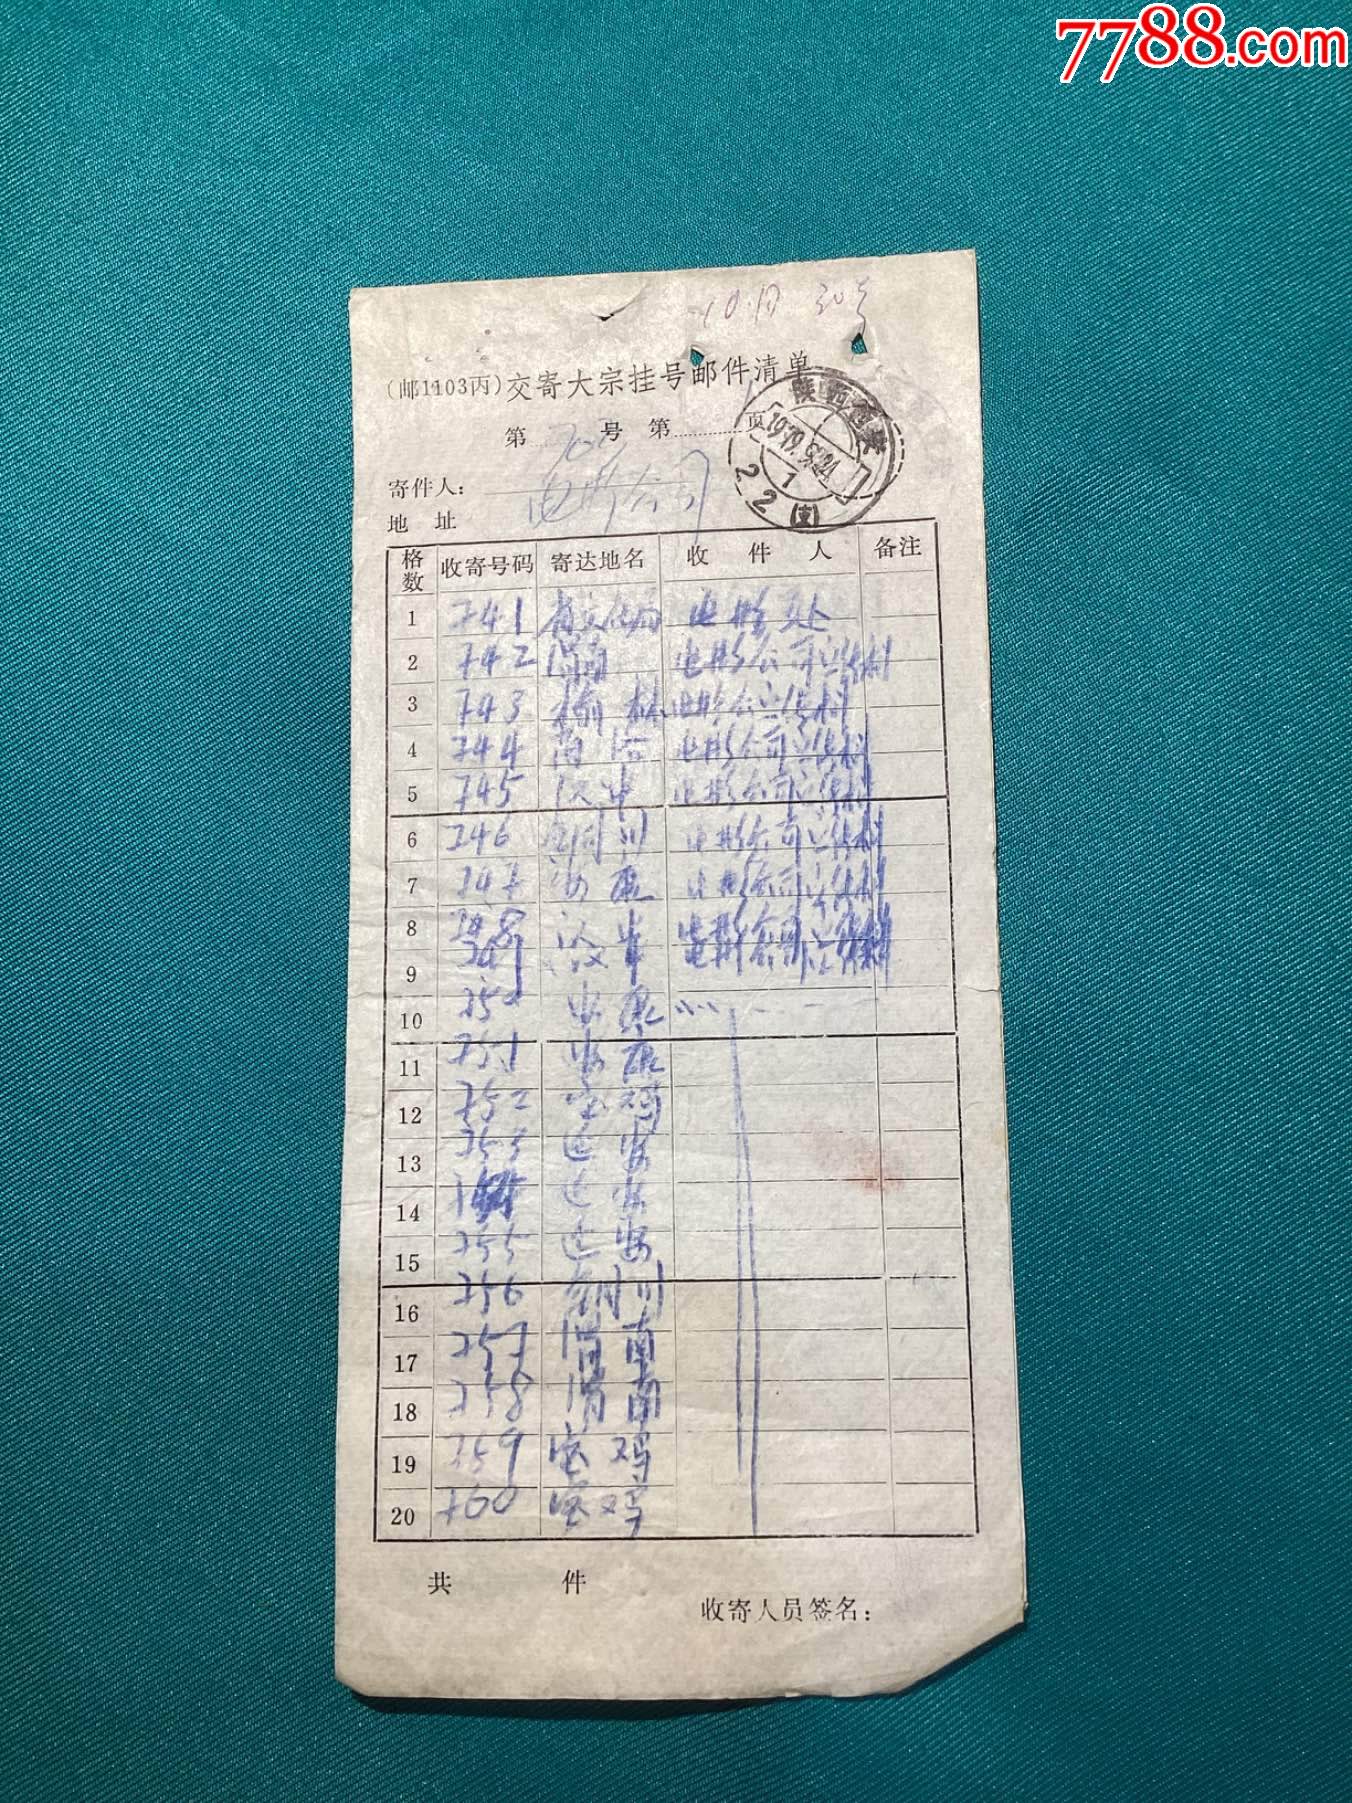 7788.com
10月30号
(邮1103丙)交寄大宗挂号邮件清单
第 号 第 页
陕西西安
1979.9.24
1
22(支)
寄件人: 电影公司
地 址
格数 收寄号码 寄达地名 收件人 备注
1 741 省文化局 电影处
2 742 渭南 电影公司宣传科
3 743 榆林 电影公司宣传科
4 744 商洛 电影公司宣传科
5 745 汉中 电影公司宣传科
6 746 铜川 电影公司宣传科
7 747 安康 电影公司宣传科
8 748 汉中 电影公司宣传科
9 749 汉中 电影公司宣传科
10 750 安康
11 751 安康
12 752 宝鸡
13 753 延安
14 延安
15 755 延安
16 756 铜川
17 757 渭南
18 758 渭南
19 759 宝鸡
20 760 宝鸡
共 件
收寄人员签名: